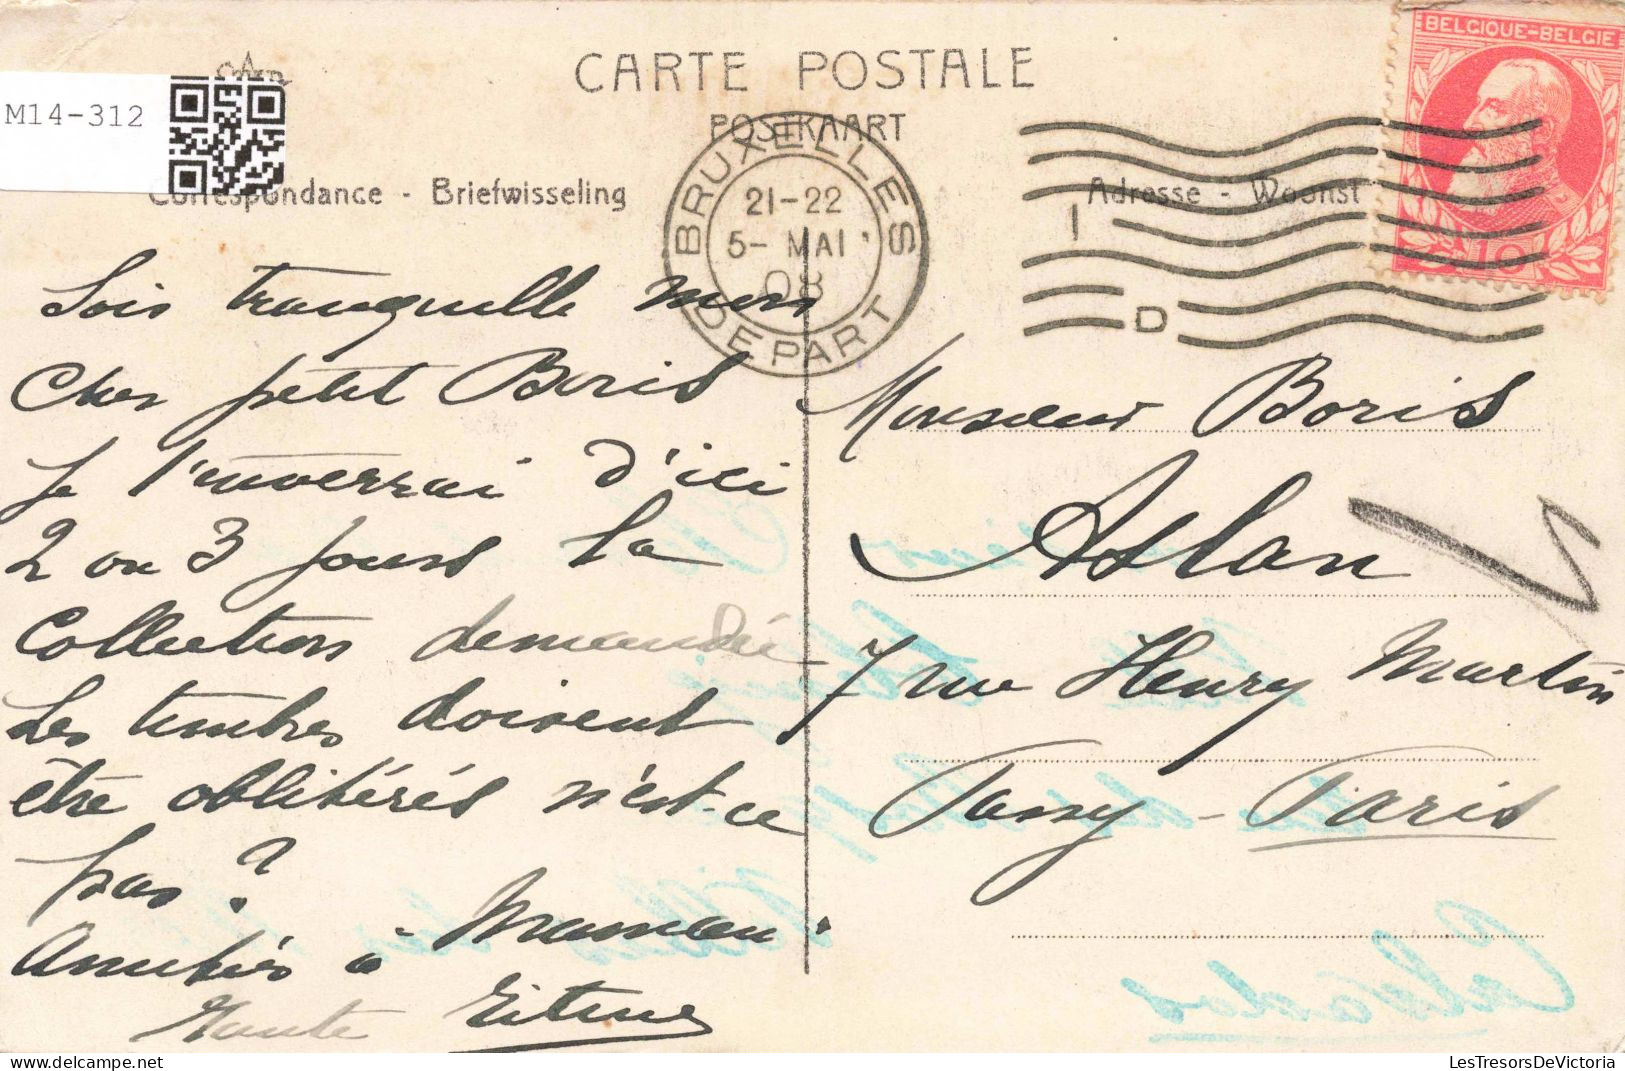 CARTE POSTALE
POSTKAART
Correspondance - Briefwisseling
Adresse - Woonst
M14-312
BELGIQUE-BELGIE
10
BRUXELLES
21-22
5- MAI
08
DEPART
I
D
Sois tranquille mon
cher petit Boris
Je t'enverrai d'ici
2 ou 3 jours la
Collection demandée
Les timbres doivent
être oblitérés n'est-ce
pas?
Amitiés à Maman
Tante
Monsieur Boris
Aslan
7 rue Henry Martin
Passy - Paris
Calvados
LesTresorsDeVictoria